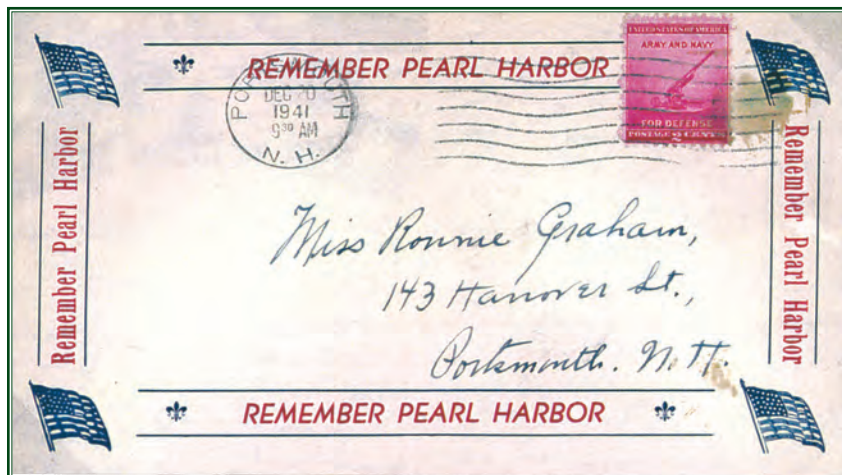 REMEMBER PEARL HARBOR
PORTSMOUTH
DEC 20
1941
9 30 AM
N. H.
UNITED STATES OF AMERICA
ARMY AND NAVY
FOR DEFENSE
POSTAGE 2 CENTS
Remember Pearl Harbor
Remember Pearl Harbor
Miss Ronnie Graham,
143 Hanover St.,
Portsmouth. N. H.
REMEMBER PEARL HARBOR